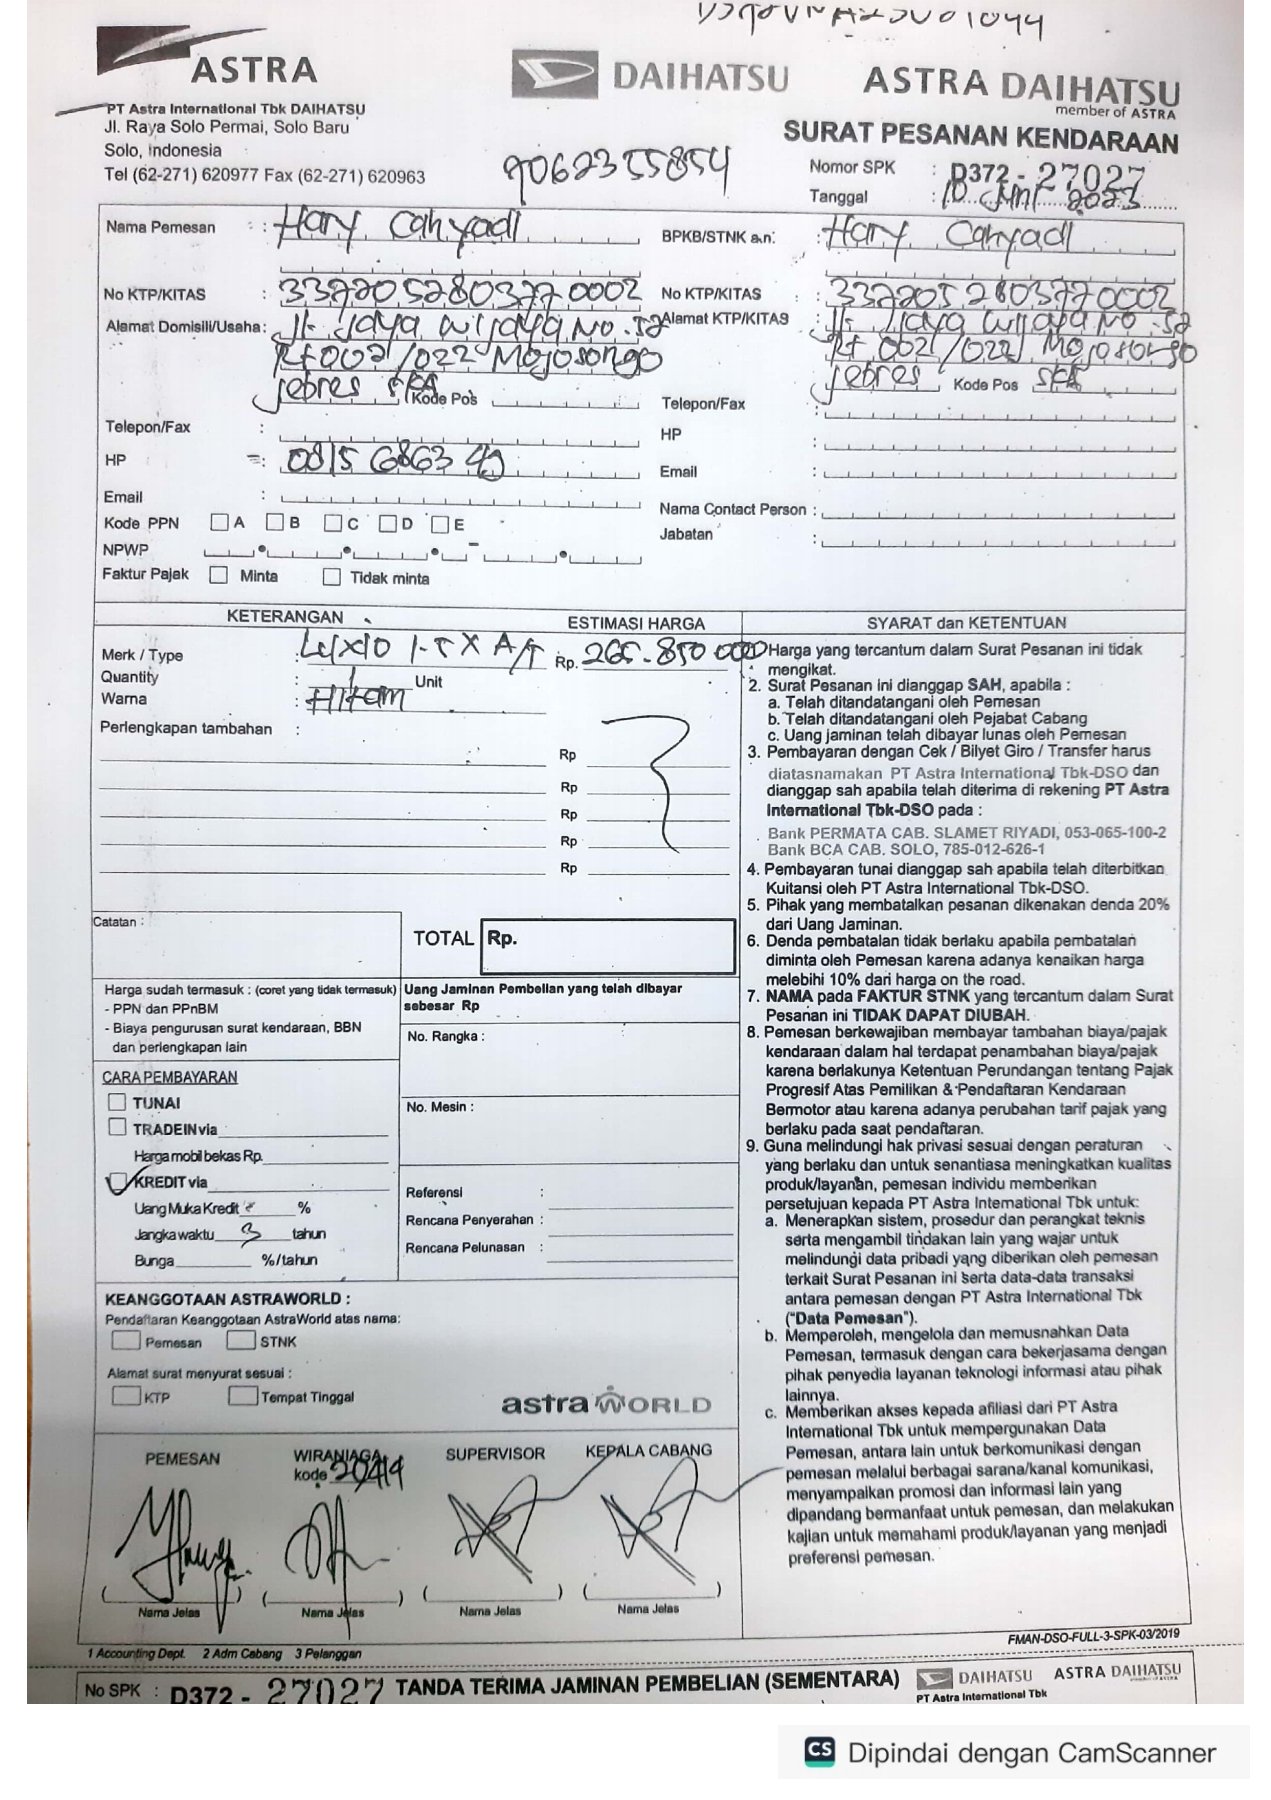 ASTRA
DAIHATSU
ASTRA DAIHATSU
member of ASTRA
PT Astra International Tbk DAIHATSU
Jl. Raya Solo Permai, Solo Baru
Solo, Indonesia
Tel (62-271) 620977 Fax (62-271) 620963
9062355854
SURAT PESANAN KENDARAAN
Nomor SPK : D372 - 27027
Tanggal : 10 Juni 2023
Nama Pemesan : Hary Cahyadi
BPKB/STNK a.n. : Hary Cahyadi
No KTP/KITAS : 3372052803770002
No KTP/KITAS : 3372052803770002
Alamat Domisili/Usaha : Jl. Jaya Wijaya No. 52
Rt 002 /022 Mojosongo
Jebres SKA Kode Pos
Alamat KTP/KITAS : Jl. Jaya Wijaya No. 52
Rt 002 /022 Mojosongo
Jebres Kode Pos SKA
Telepon/Fax :
HP : 0815 6863 49
Email :
Telepon/Fax :
HP :
Email :
Nama Contact Person :
Jabatan :
Kode PPN A B C D E
NPWP
Faktur Pajak Minta Tidak minta
KETERANGAN ESTIMASI HARGA
Merk / Type : Luxio 1.5 X A/T Rp. 265.850.000
Quantity : 1 Unit
Warna : Hitam
Perlengkapan tambahan :
Rp
Rp
Rp
Rp
Rp
Catatan :
TOTAL Rp.
Harga sudah termasuk : (coret yang tidak termasuk)
- PPN dan PPnBM
- Biaya pengurusan surat kendaraan, BBN
dan perlengkapan lain
Uang Jaminan Pembelian yang telah dibayar
sebesar Rp
No. Rangka :
No. Mesin :
CARA PEMBAYARAN
TUNAI
TRADEIN via
Harga mobil bekas Rp.
KREDIT via
Uang Muka Kredit %
Jangka waktu 3 tahun
Bunga %/tahun
Referensi :
Rencana Penyerahan :
Rencana Pelunasan :
KEANGGOTAAN ASTRAWORLD :
Pendaftaran Keanggotaan AstraWorld atas nama:
Pemesan STNK
Alamat surat menyurat sesuai :
KTP Tempat Tinggal
astra WORLD
SYARAT dan KETENTUAN
Harga yang tercantum dalam Surat Pesanan ini tidak
mengikat.
2. Surat Pesanan ini dianggap SAH, apabila :
a. Telah ditandatangani oleh Pemesan
b. Telah ditandatangani oleh Pejabat Cabang
c. Uang jaminan telah dibayar lunas oleh Pemesan
3. Pembayaran dengan Cek / Bilyet Giro / Transfer harus
diatasnamakan PT Astra International Tbk-DSO dan
dianggap sah apabila telah diterima di rekening PT Astra
International Tbk-DSO pada :
Bank PERMATA CAB. SLAMET RIYADI, 053-065-100-2
Bank BCA CAB. SOLO, 785-012-626-1
4. Pembayaran tunai dianggap sah apabila telah diterbitkan
Kuitansi oleh PT Astra International Tbk-DSO.
5. Pihak yang membatalkan pesanan dikenakan denda 20%
dari Uang Jaminan.
6. Denda pembatalan tidak berlaku apabila pembatalan
diminta oleh Pemesan karena adanya kenaikan harga
melebihi 10% dari harga on the road.
7. NAMA pada FAKTUR STNK yang tercantum dalam Surat
Pesanan ini TIDAK DAPAT DIUBAH.
8. Pemesan berkewajiban membayar tambahan biaya/pajak
kendaraan dalam hal terdapat penambahan biaya/pajak
karena berlakunya Ketentuan Perundangan tentang Pajak
Progresif Atas Pemilikan & Pendaftaran Kendaraan
Bermotor atau karena adanya perubahan tarif pajak yang
berlaku pada saat pendaftaran.
9. Guna melindungi hak privasi sesuai dengan peraturan
yang berlaku dan untuk senantiasa meningkatkan kualitas
produk/layanan, pemesan individu memberikan
persetujuan kepada PT Astra International Tbk untuk:
a. Menerapkan sistem, prosedur dan perangkat teknis
serta mengambil tindakan lain yang wajar untuk
melindungi data pribadi yang diberikan oleh pemesan
terkait Surat Pesanan ini serta data-data transaksi
antara pemesan dengan PT Astra International Tbk
("Data Pemesan").
b. Memperoleh, mengelola dan memusnahkan Data
Pemesan, termasuk dengan cara bekerjasama dengan
pihak penyedia layanan teknologi informasi atau pihak
lainnya.
c. Memberikan akses kepada afiliasi dari PT Astra
International Tbk untuk mempergunakan Data
Pemesan, antara lain untuk berkomunikasi dengan
pemesan melalui berbagai sarana/kanal komunikasi,
menyampaikan promosi dan informasi lain yang
dipandang bermanfaat untuk pemesan, dan melakukan
kajian untuk memahami produk/layanan yang menjadi
preferensi pemesan.
PEMESAN WIRANIAGA SUPERVISOR KEPALA CABANG
kode
Nama Jelas Nama Jelas Nama Jelas Nama Jelas
FMAN-DSO-FULL-3-SPK-03/2019
1 Accounting Dept. 2 Adm Cabang 3 Pelanggan
No SPK : D372 - 27027 TANDA TERIMA JAMINAN PEMBELIAN (SEMENTARA)
DAIHATSU ASTRA DAIHATSU
PT Astra International Tbk
CS Dipindai dengan CamScanner